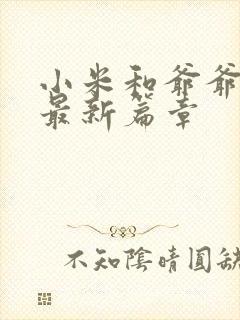 小米和爷爷
最新篇章
不知陰晴圓缺